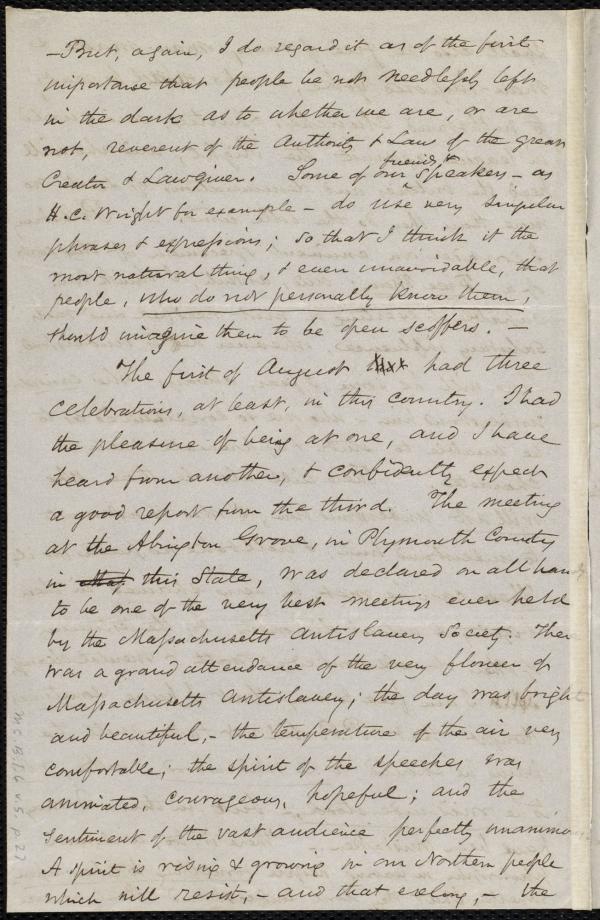 —But, again, I do regard it as of the first
importance that people be not needlessly left
in the dark as to whether we are, or are
not, reverent of the Authority & Law of the great
Creator & Lawgiver. Some of our friends & speakers — as
H.C. Wright for example — do use very singular
phrases & expressions; so that I think it the
most natural thing, & even unavoidable, that
people, who do not personally know them,
should imagine them to be open scoffers. —
The first of August had three
celebrations, at least, in this country. I had
the pleasure of being at one, and I have
heard from another, & confidently expect
a good report from the third. The meeting
at the Abington Grove, in Plymouth County
in this State, was declared on all hands
to be one of the very best meetings ever held
by the Massachusetts Antislavery Society. Ther
was a grand attendance of the very flower of
Massachusetts Antislavery; the day was bright
and beautiful, — the temperature of the air very
comfortable; the spirit of the speeches was
animated, courageous, hopeful; and the
sentiment of the vast audience perfectly unanimo
A spirit is rising & growing in our Northern people
which will resist, — and that — the
Ms.B.1.6 v.5, p.27